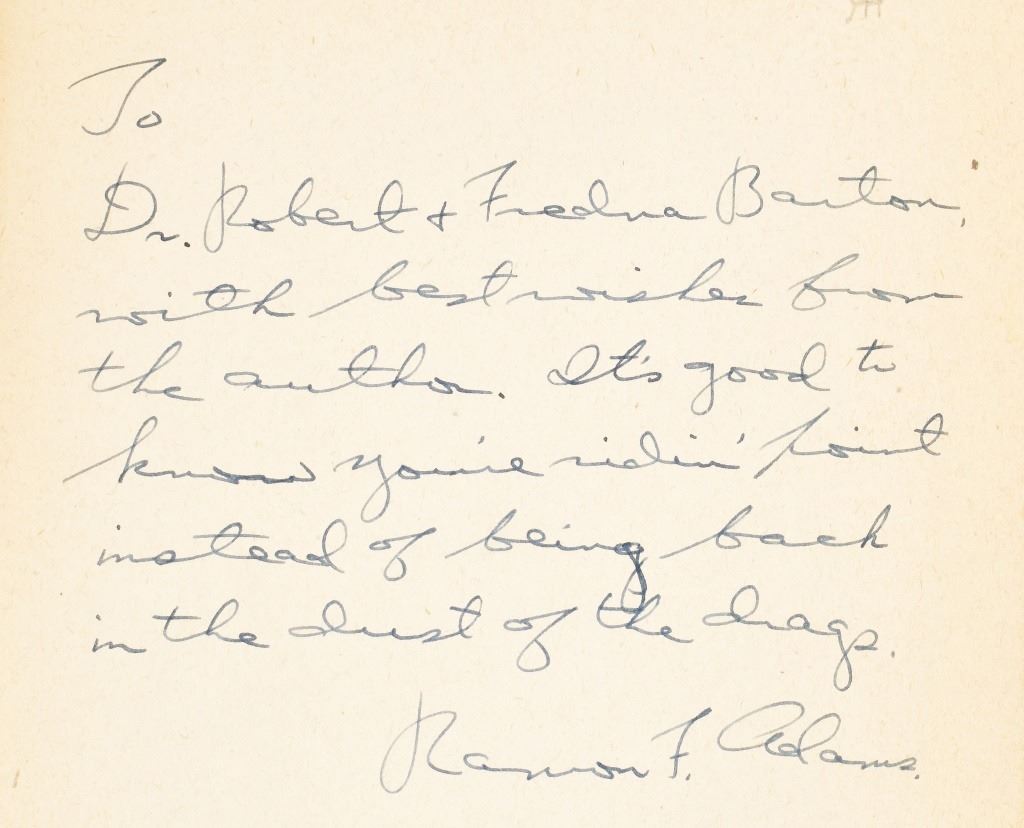 To
Dr. Robert & Fredna Barton,
with best wishes from
the author. It's good to
know you're ridin' point
instead of being back
in the dust of the drags.
Ramon F. Adams.